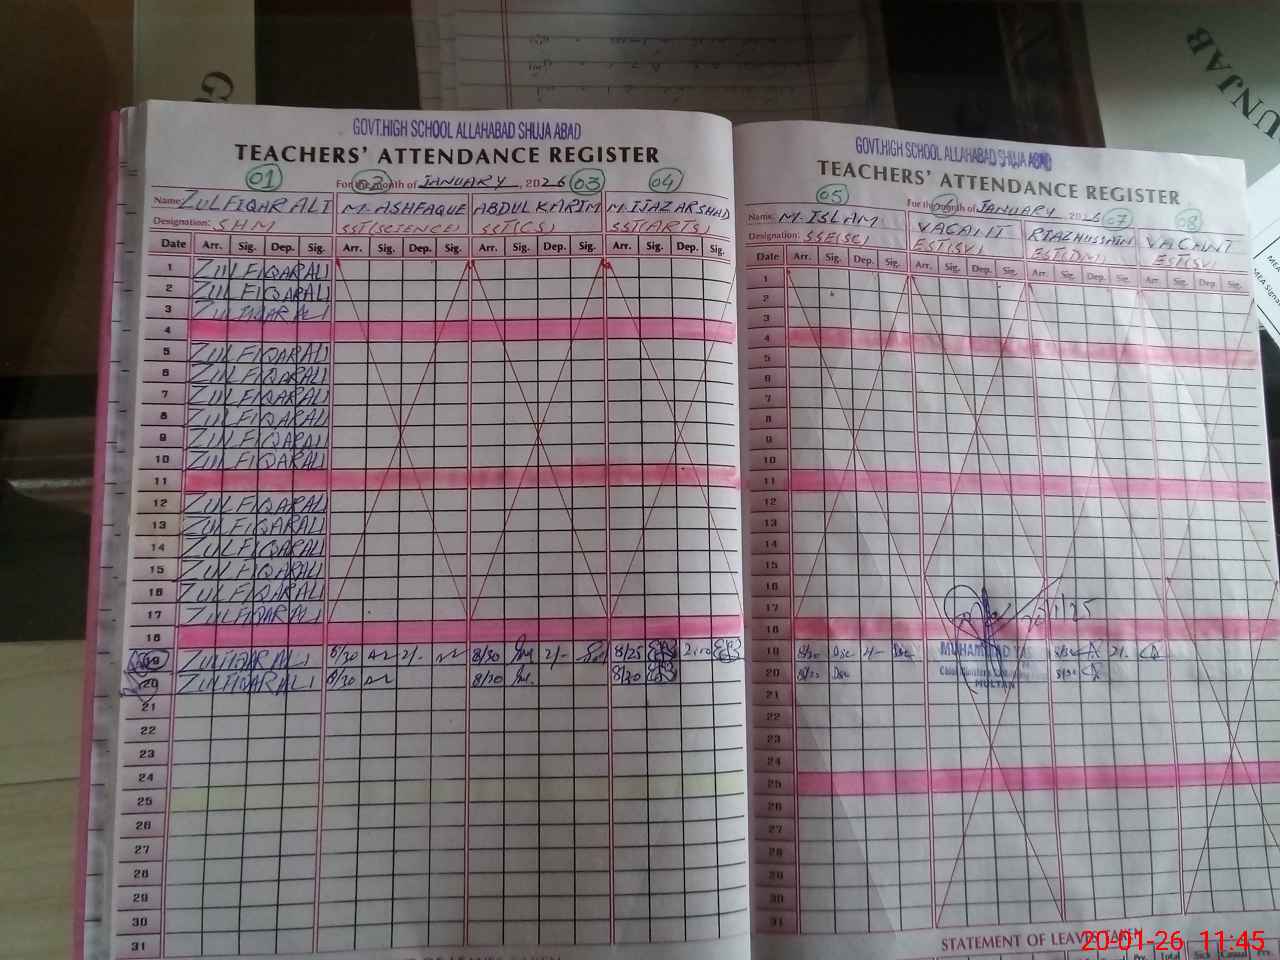 UNJAB
GOVT.HIGH SCHOOL ALLAHABAD SHUJA ABAD
TEACHERS' ATTENDANCE REGISTER
01 02 03 04
For the month of JANUARY, 2026
Name ZULFIQAR ALI M. ASHFAQUE ABDUL KARIM M. IJAZ ARSHAD
Designation: SHM SST(SCIENCE) SST(CS) SST(ARTS)
Date Arr. Sig. Dep. Sig. Arr. Sig. Dep. Sig. Arr. Sig. Dep. Sig. Arr. Sig. Dep. Sig.
1 ZULFIQAR ALI
2 ZULFIQAR ALI
3 ZULFIQAR ALI
4
5 ZULFIQAR ALI
6 ZULFIQAR ALI
7 ZULFIQAR ALI
8 ZULFIQAR ALI
9 ZULFIQAR ALI
10 ZULFIQAR ALI
11
12 ZULFIQAR ALI
13 ZULFIQAR ALI
14 ZULFIQAR ALI
15 ZULFIQAR ALI
16 ZULFIQAR ALI
17 ZULFIQAR ALI
18
19 ZULFIQAR ALI 8/30 2/- 8/30 2/- 8/25
20 ZULFIQAR ALI 8/30 8/30 8/30
21
22
23
24
25
26
27
28
29
30
31
GOVT.HIGH SCHOOL ALLAHABAD SHUJA ABAD
TEACHERS' ATTENDANCE REGISTER
05 06 07 08
For the month of JANUARY 2026
Name: M. ISLAM VACANT RIAZ HUSSAIN VACANT
Designation: SSE(SC) EST(SV) EST(DM) EST(SV)
Date Arr. Sig. Dep. Sig. Arr. Sig. Dep. Sig. Arr. Sig. Dep. Sig. Arr. Sig. Dep. Sig.
1
2
3
4
5
6
7
8
9
10
11
12
13
14
15
16
17
18
19
20
21
22
23
24
25
26
27
28
29
30
31
MULTAN
STATEMENT OF LEAVES TAKEN
20-01-26 11:45